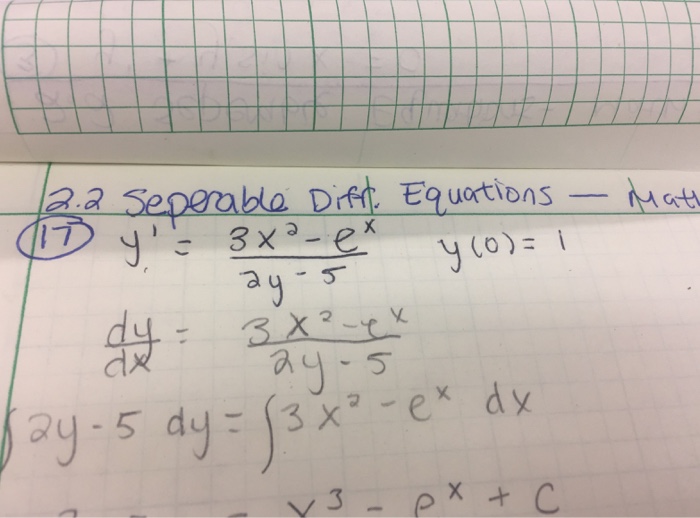 2.2 Seperable Diff. Equations —
17 y' = (3x² - eˣ)/(2y - 5) y(0) = 1
dy/dx = (3x² - eˣ)/(2y - 5)
∫ 2y - 5 dy = ∫ 3x² - eˣ dx
x³ - eˣ + C